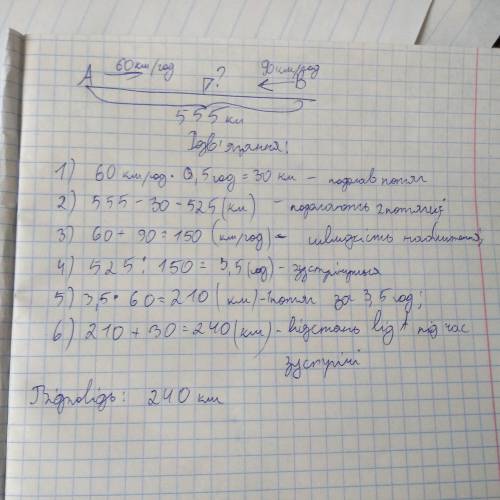 60 км/год ? 90 км/год
A B
555 км
Розв'язання:
1) 60 км/год · 0,5 год = 30 км – подолав потяг
2) 555 - 30 - 525 (км) - подолають 2 потяги;
3) 60 + 90 = 150 (км/год) - швидкість наближення;
4) 525 : 150 = 3,5 (год) - зустрінуться
5) 3,5 · 60 = 210 ( км) - 1 потяг за 3,5 год;
6) 210 + 30 = 240 (км) - відстань від A під час
зустрічі
Відповідь: 240 км